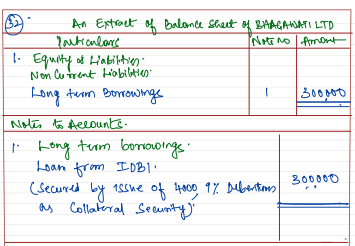 32. An Extract of Balance Sheet of BHAGAWATI LTD
Particulars Note no Amount
1. Equity & Liabilities.
Non Current Liabilities.
Long term Borrowings 1 300,000
Notes to Accounts.
1. Long term borrowings.
Loan from IDBI.
(Secured by issue of 4000, 9% Debentures 300,000
as Collateral Security).